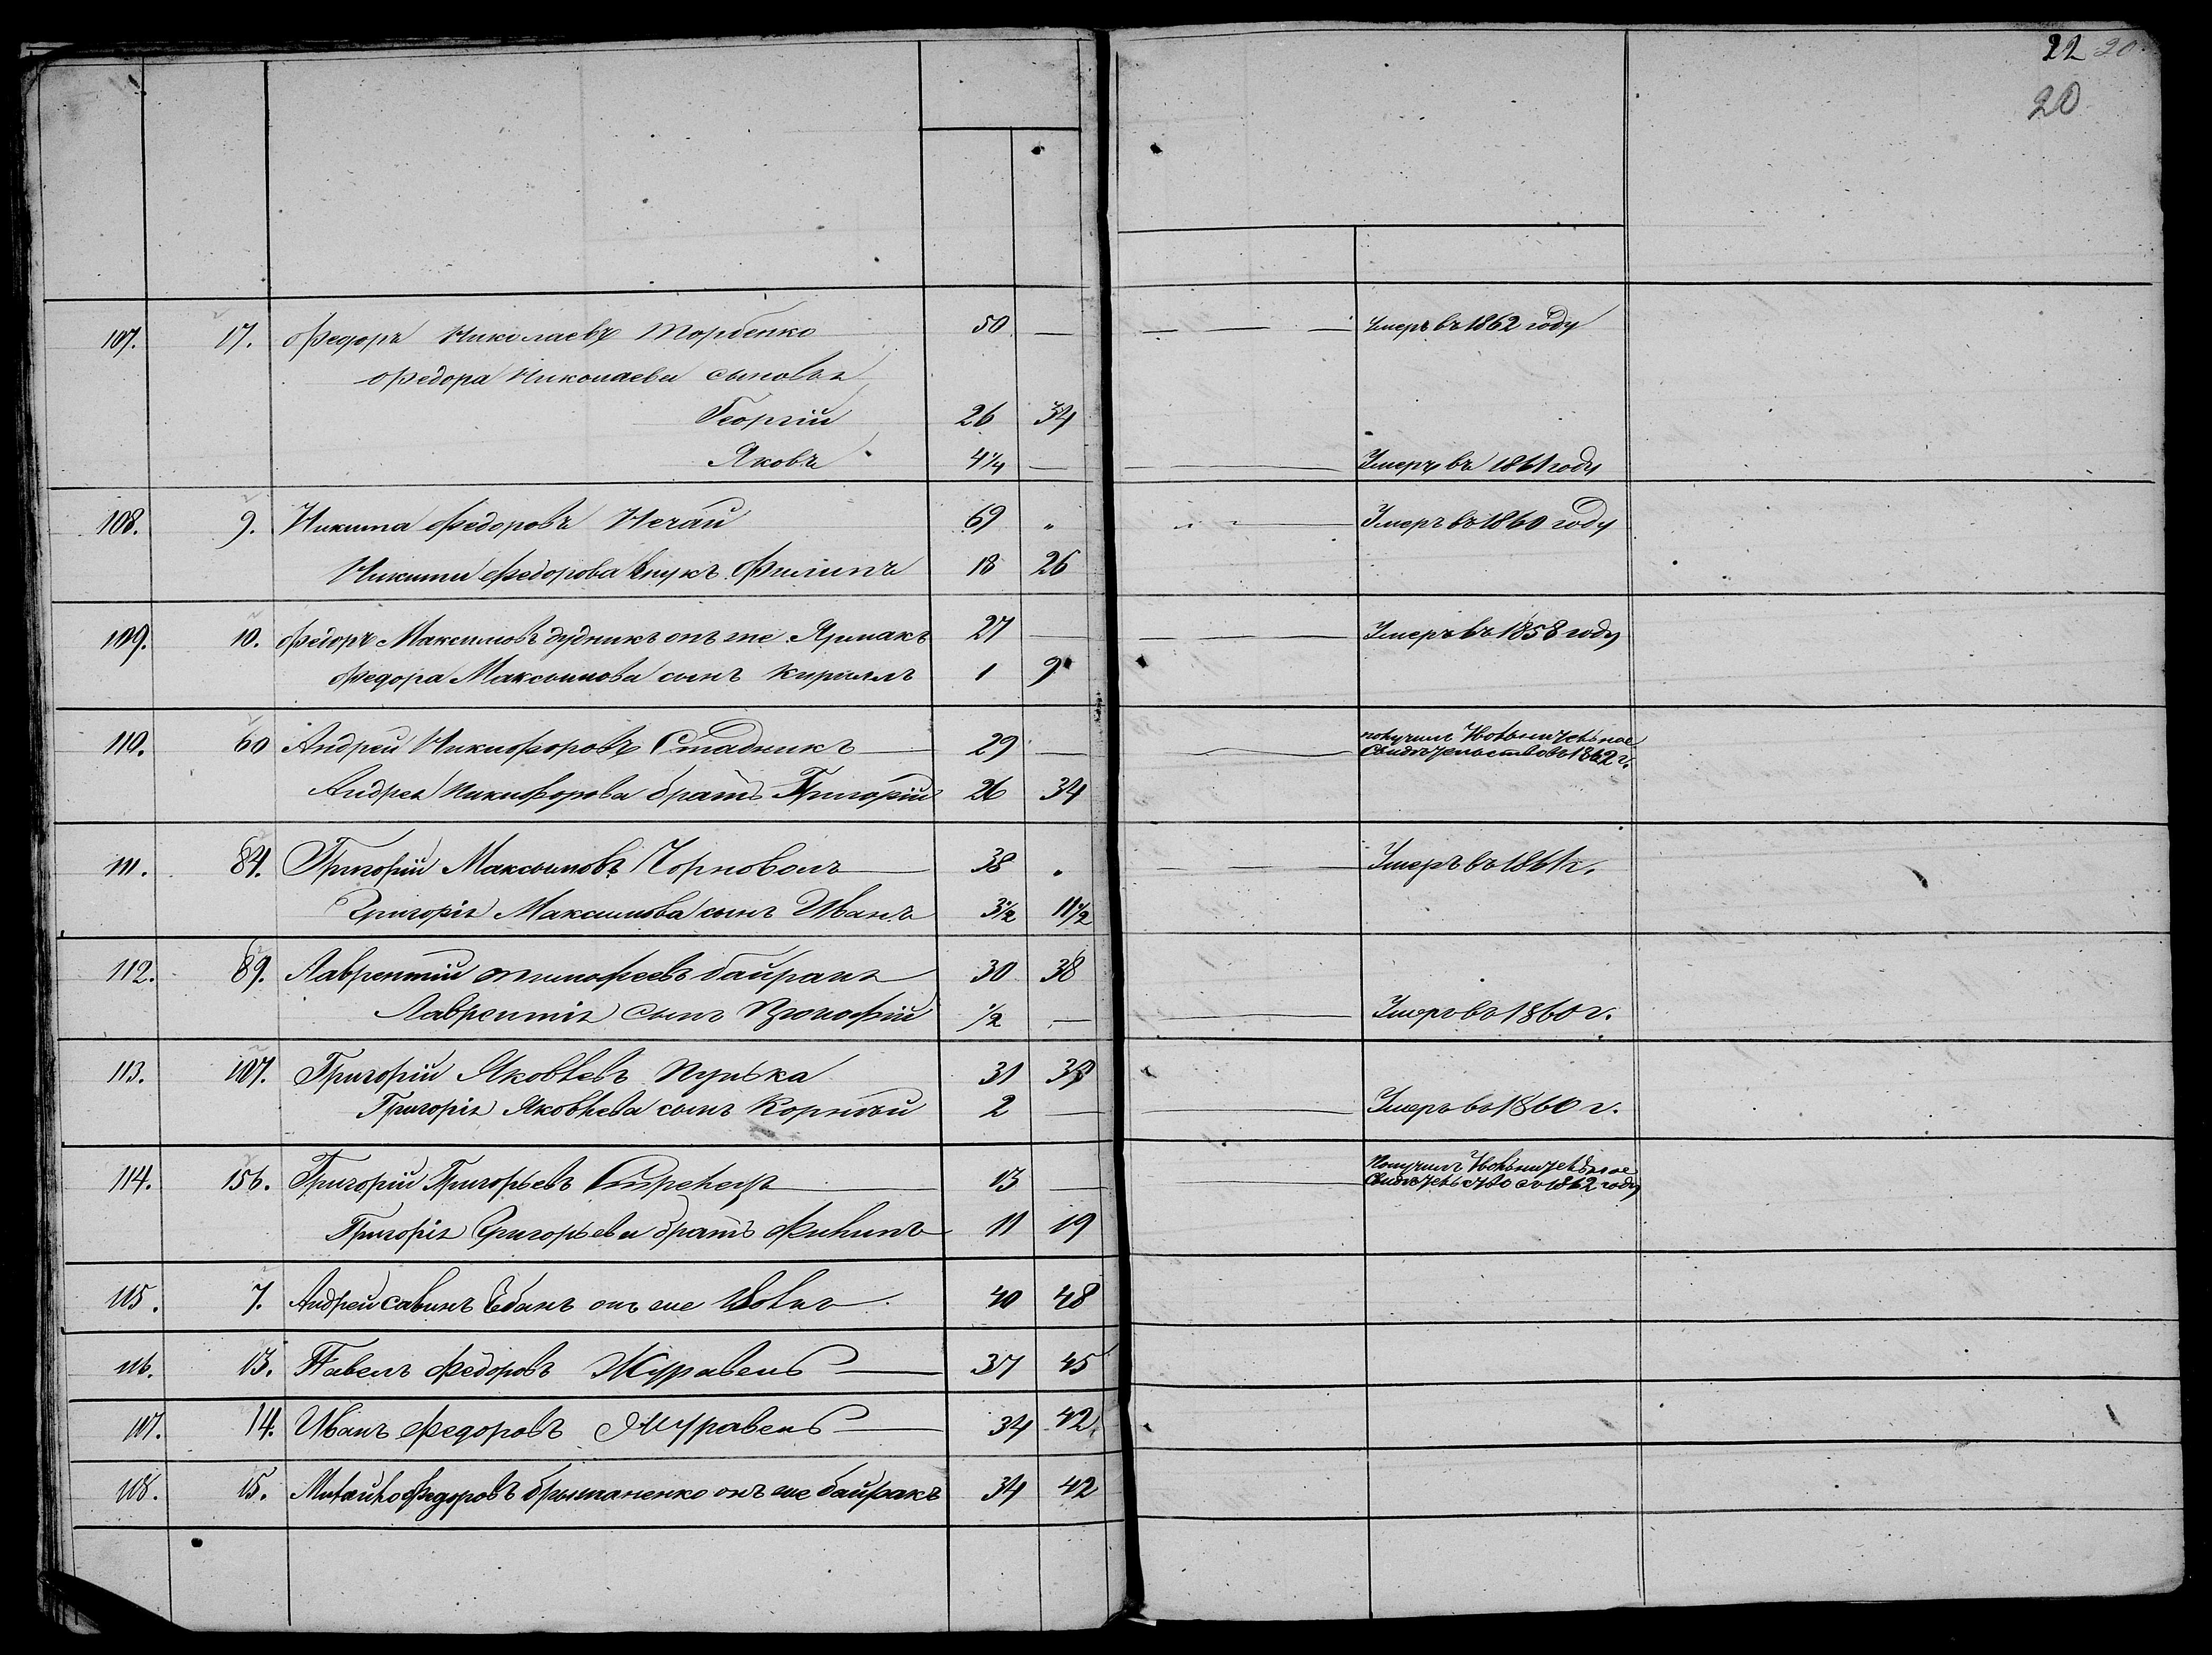 22 20
20
107. 17. Федоръ Николаевъ Торбенко 50 — — Умеръ въ 1862 году
Федора Николаева сыновья
Георгій 26 34
Яковъ 4¼ — — Умеръ въ 1861 году
108. 9. Никита Федоровъ Нечай 69 „ — Умеръ въ 1860 году
Никиты Федорова внукъ Филипъ 18 26
109. 10. Федоръ Максимовъ Дудникъ онъ же Ярмакъ 27 — — Умеръ въ 1858 году
Федора Максимова сынъ Кирилъ 1 9
110. 60 Андрей Никифоровъ Стадникъ 29 — — получилъ Увольнительное
Свидѣтельство въ 1862 г.
Андрея Никифорова братъ Григорій 26 34
111. 84. Григорій Максимовъ Чорноволъ 38 „ — Умеръ въ 1861 г.
Григорія Максимова сынъ Иванъ 3½ 11½
112. 89. Лаврентій Тимофеевъ байракъ 30 38
Лаврентія сынъ Прокофій ½ — — Умеръ въ 1860 г.
113. 107. Григорій Яковлевъ 31 39
Григорія Яковлева сынъ Корнѣй 2 — — Умеръ въ 1860 г.
114. 156. Григорій Григорьевъ Стрелецъ 13 — — Получилъ Увольнительное
Свидѣтельство въ 1862 году
Григорія Григорьева братъ Филипъ 11 19
115. 7. Андрей Савинъ онъ же 40 48
116. 13. Павелъ Федоровъ Журавель 37 45
117. 14. Иванъ Федоровъ Журавель 34 42
118. 15. Михайло Федоровъ онъ же байракъ 34 42